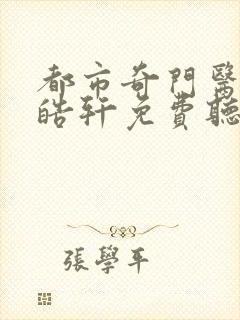 都市奇門醫
皓軒免費聽
張學平